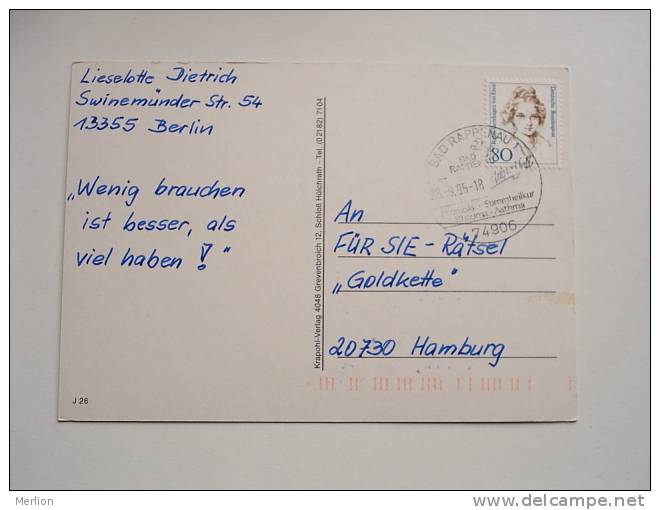 Lieselotte Dietrich
Swinemünder Str. 54
13355 Berlin
„Wenig brauchen
ist besser, als
viel haben!“
J 26
Krapohl-Verlag 4048 Grevenbroich 12, Schloß Hülchrath - Tel. (0 21 82) 71 04
Deutsche Bundespost
80
BAD RAPPENAU 1
BAD
74906
An
FÜR SIE - Rätsel
„Goldkette“
20730 Hamburg
Merlion
www.delcampe.net